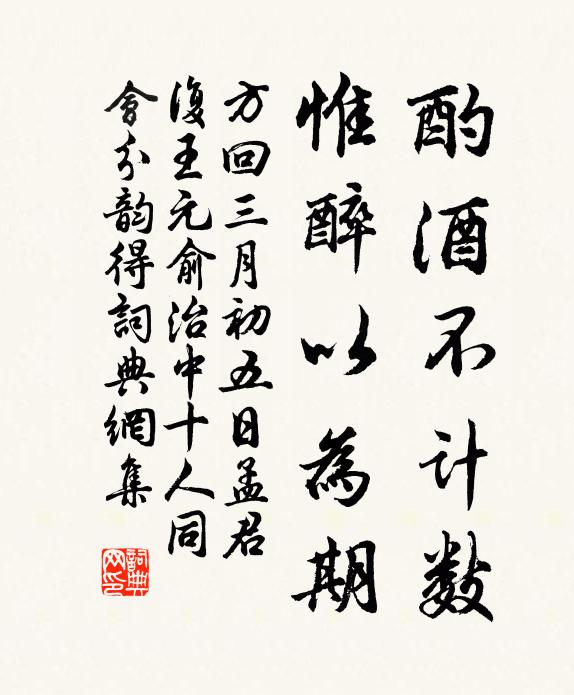 酌酒不计数
惟醉以為期
方回三月初五日孟君
復王元俞治中十人同
會分韵得詞典網集
詞典網印